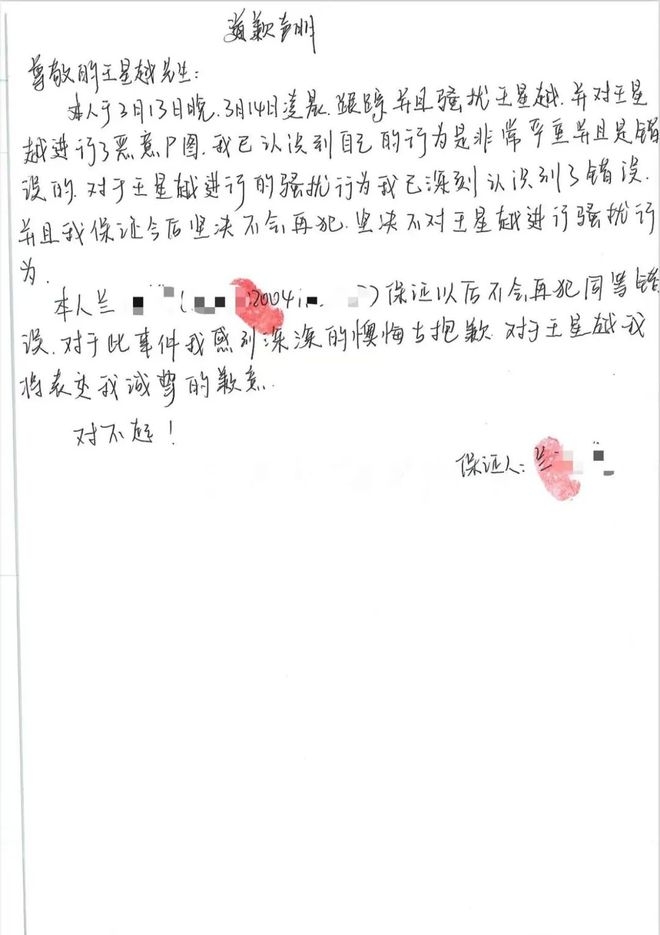 道歉声明
尊敬的王星越先生:
本人于3月13日晚,3月14日凌晨,跟踪并且骚扰王星越,并对王星
越进行了恶意P图,我已认识到自己的行为是非常严重并且是错
误的,对于王星越进行的骚扰行为我已深刻认识到了错误,
并且我保证今后坚决不会再犯,坚决不对王星越进行骚扰行
为.
本人兰 ( 2004 )保证以后不会再犯同等错
误,对于此事件我感到深深的懊悔与抱歉 对于王星越我
将表达我诚挚的歉意.
对不起!
保证人:兰